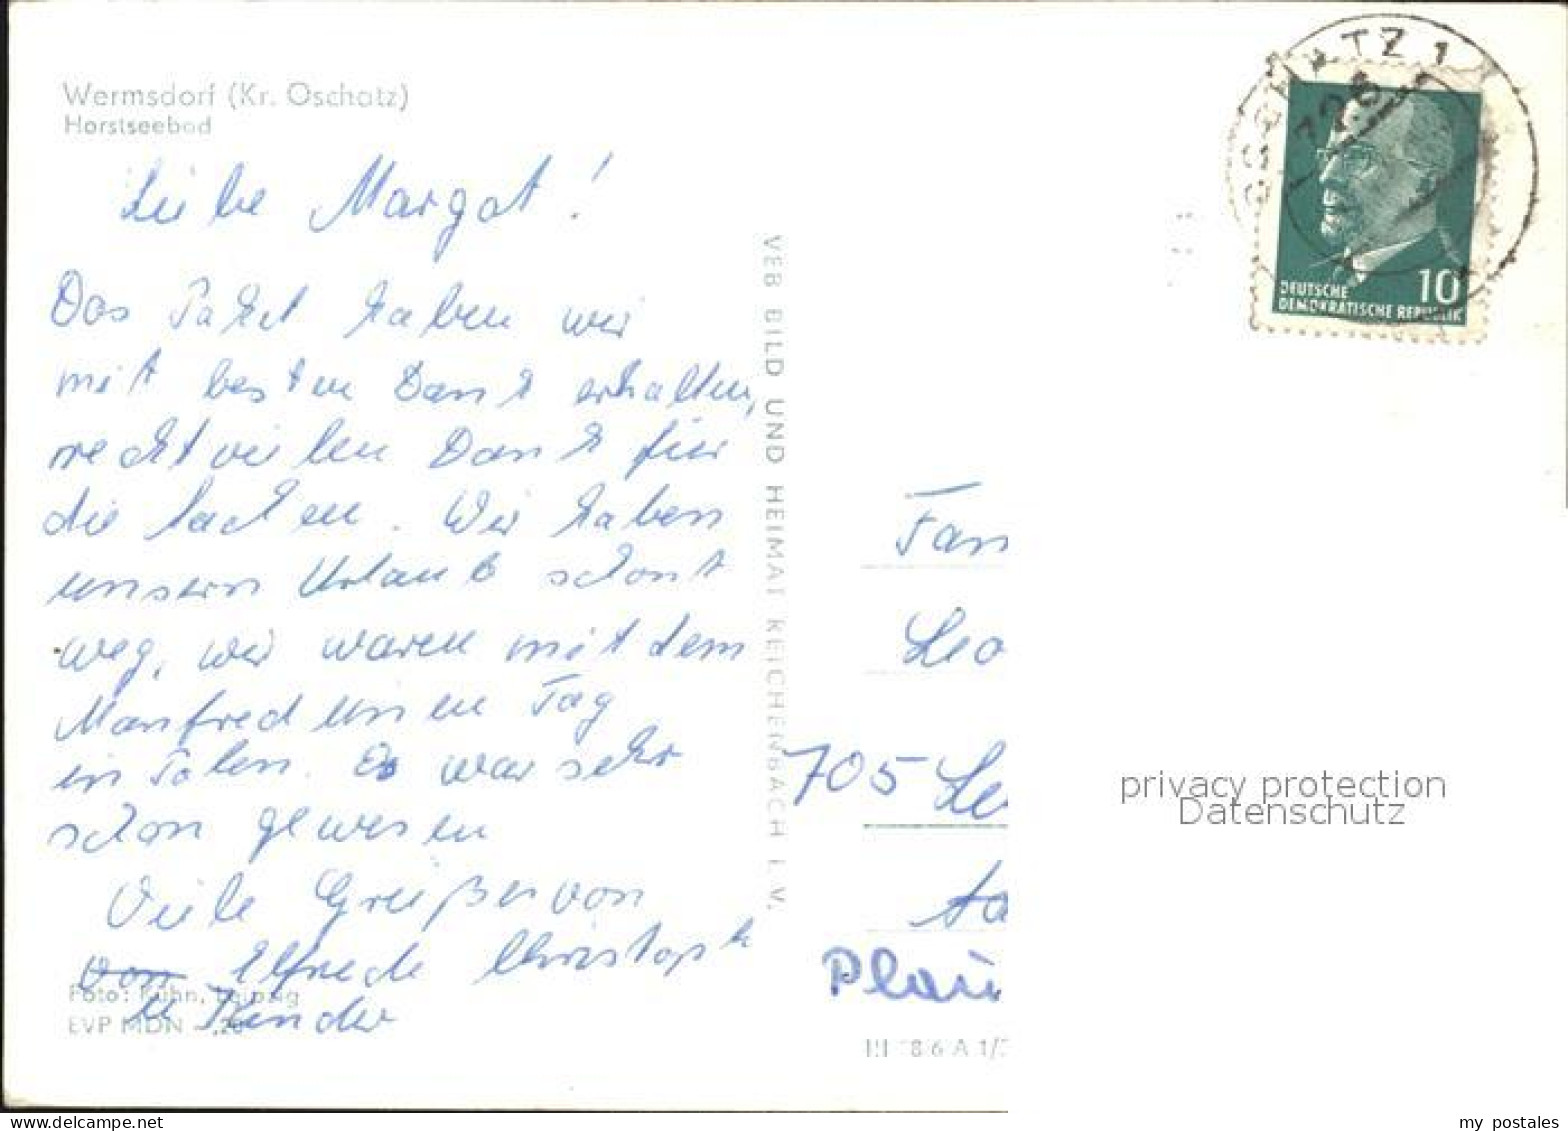 Wermsdorf (Kr. Oschatz)
Horstseebad
Liebe Margot!
Das Paket haben wir
mit besten Dank erhalten,
recht vielen Dank für
die Sachen. Wir haben
unsern Urlaub schont
weg, wir waren mit dem
Manfred einen Tag
in Polen. Es war sehr
schön gewesen
Viele Grüße von
von Elfriede Christoph
u Kinder
Foto: Kühn, Leipzig
EVP MDN -,20
VEB BILD UND HEIMAT REICHENBACH I. V.
OSCHATZ 1
DEUTSCHE
DEMOKRATISCHE REPUBLIK
10
Fam
Leo
705 Le
Plau
III 18 6 A 1/
privacy protection
Datenschutz
my postales